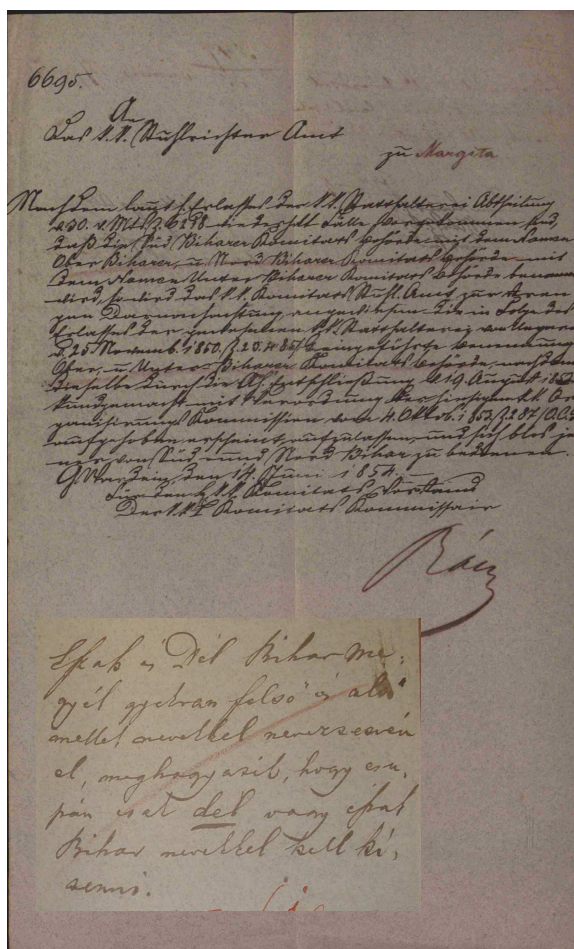 6695.
An
Das k.k. Stuhlrichter Amt
zu Margita
Nachdem laut Erlasses der k.k. Statthalterei Abtheilung
d 30. v. Mts Z. 6198 wiederholt Fälle vorgekommen sind,
daß die Süd Biharer Komitats Behörde mit dem Namen
Ober Biharer, u. Nord Biharer Komitats Behörde mit
dem Namen Unter Biharer Komitats Behörde benannt
wird, so wird das k.k. Komitats Stuhl. Amt zur
gen Darnachachtung angewiesen die in Folge des
Erlasses der k.k. Statthalterei von Ungarn
d. 25 Novemb. 1850. Z. eingeführte Benennung
Ober, u. Unter-Biharer Komitats Behörde, nachdem
dieselbe durch die Ah. Entschließung d 19. August
kundgemacht mit Verordnung der hiesigen k.k. Or
ganisirungs Kommission vom 4. Oktob. 1853 Z. 287/
aufgehoben erscheint, aufzulassen, und sich blos je
ner von Süd und Nord Bihar zu bedienen.
GWardein den 14. Juni 1854.
Für den k.k. Komitats Vorstand
Der k.k. Komitats Kommissair
Rácz
Éßak és Dél Bihar me-
gyék gyakran felső és alsó
mellék nevekkel neveztetvén
el, meghagyatik, hogy csu-
pán csak dél vagy éßak
Bihar nevekkel kell ki-